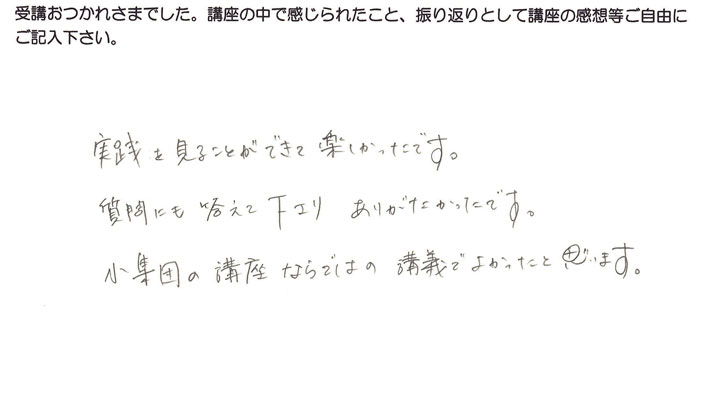 受講おつかれさまでした。講座の中で感じられたこと、振り返りとして講座の感想等ご自由に
ご記入下さい。
実践を見ることができて楽しかったです。
質問にも答えて下さり ありがたかったです。
小集団の講座ならではの講義でよかったと思います。